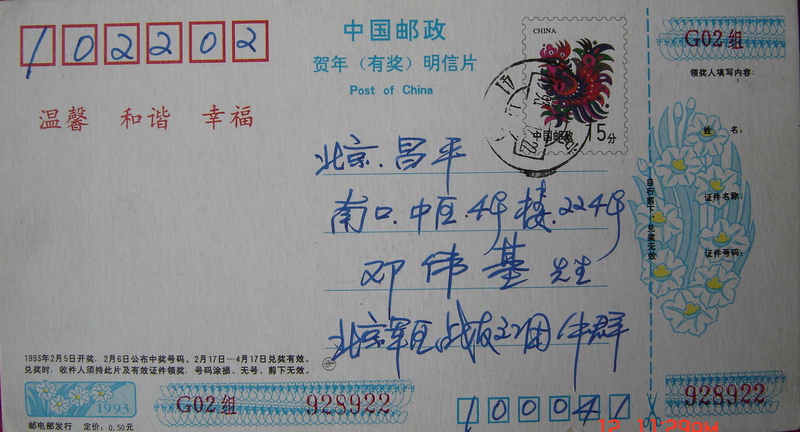 102202
中国邮政
贺年(有奖)明信片
Post of China
温馨 和谐 幸福
CHINA
中国邮政 15分
北京.昌平
南口.中区.4号楼.224号
邓伟基 先生
北京军区战友文工团 牛群
100041
1993年2月5日开奖,2月6日公布中奖号码。2月17日—4月17日兑奖有效。
兑奖时,收件人须持此片及有效证件领奖,号码涂损、无号、剪下无效。
1993
邮电部发行 定价:0.50元
G02组 928922
G02组
领奖人填写内容:
姓 名:
证件名称:
证件号码:
自行剪下,兑奖无效
928922
12 11:29PM